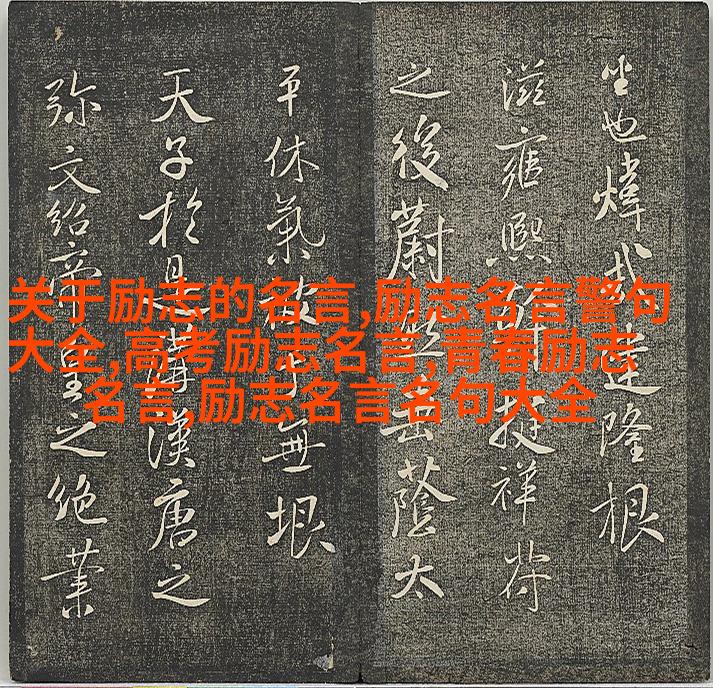 也煒哉隆根
滋雍熙挺祥符
之後蔚蔭太
平休氣被乎無垠
天子於是講漢唐之
弥文紹帝皇之絶業
关于励志的名言,励志名言警句
大全,高考励志名言,青春励志
名言,励志名言名句大全